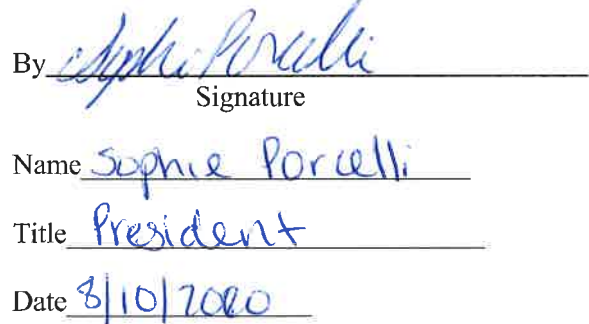 By Sophie Porcelli
Signature
Name Sophie Porcelli
Title President
Date 8/10/2020